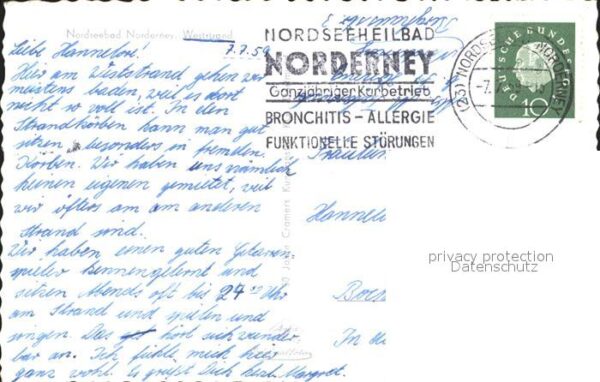 Nordseebad Norderney, Weststrand
7.7.59
Liebe Hannelore!
Hier am Weststrand gehen wir
meistens baden, weil es dort
nicht so voll ist. In den
Strandkörben kann man gut
sitzen, besonders in fremden
Körben. Wir haben uns nämlich
keinen eigenen gemietet, weil
wir öfters am am anderen
Strand sind.
Wir haben einen guten Gitarren
spieler kennengelernt und
sitzen Abends oft bis 24 00 Uhr
am Strand und spielen und
singen. Das hört sich wunder
bar an. Ich fühle mich hier
ganz wohl. Es grüßt Dich herzl. Margret.
NORDSEEHEILBAD
NORDERNEY
Ganzjähriger Kurbetrieb
BRONCHITIS – ALLERGIE
FUNKTIONELLE STÖRUNGEN
(23) NORDSEEBAD NORDERNEY
-7.7.59
DEUTSCHE BUNDESPOST
10
Fräulein
Hannelo
Boch
In de
privacy protection
Datenschutz